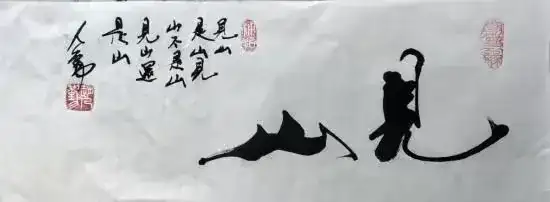 見山
見山
是山見
山不是山
見山還
是山